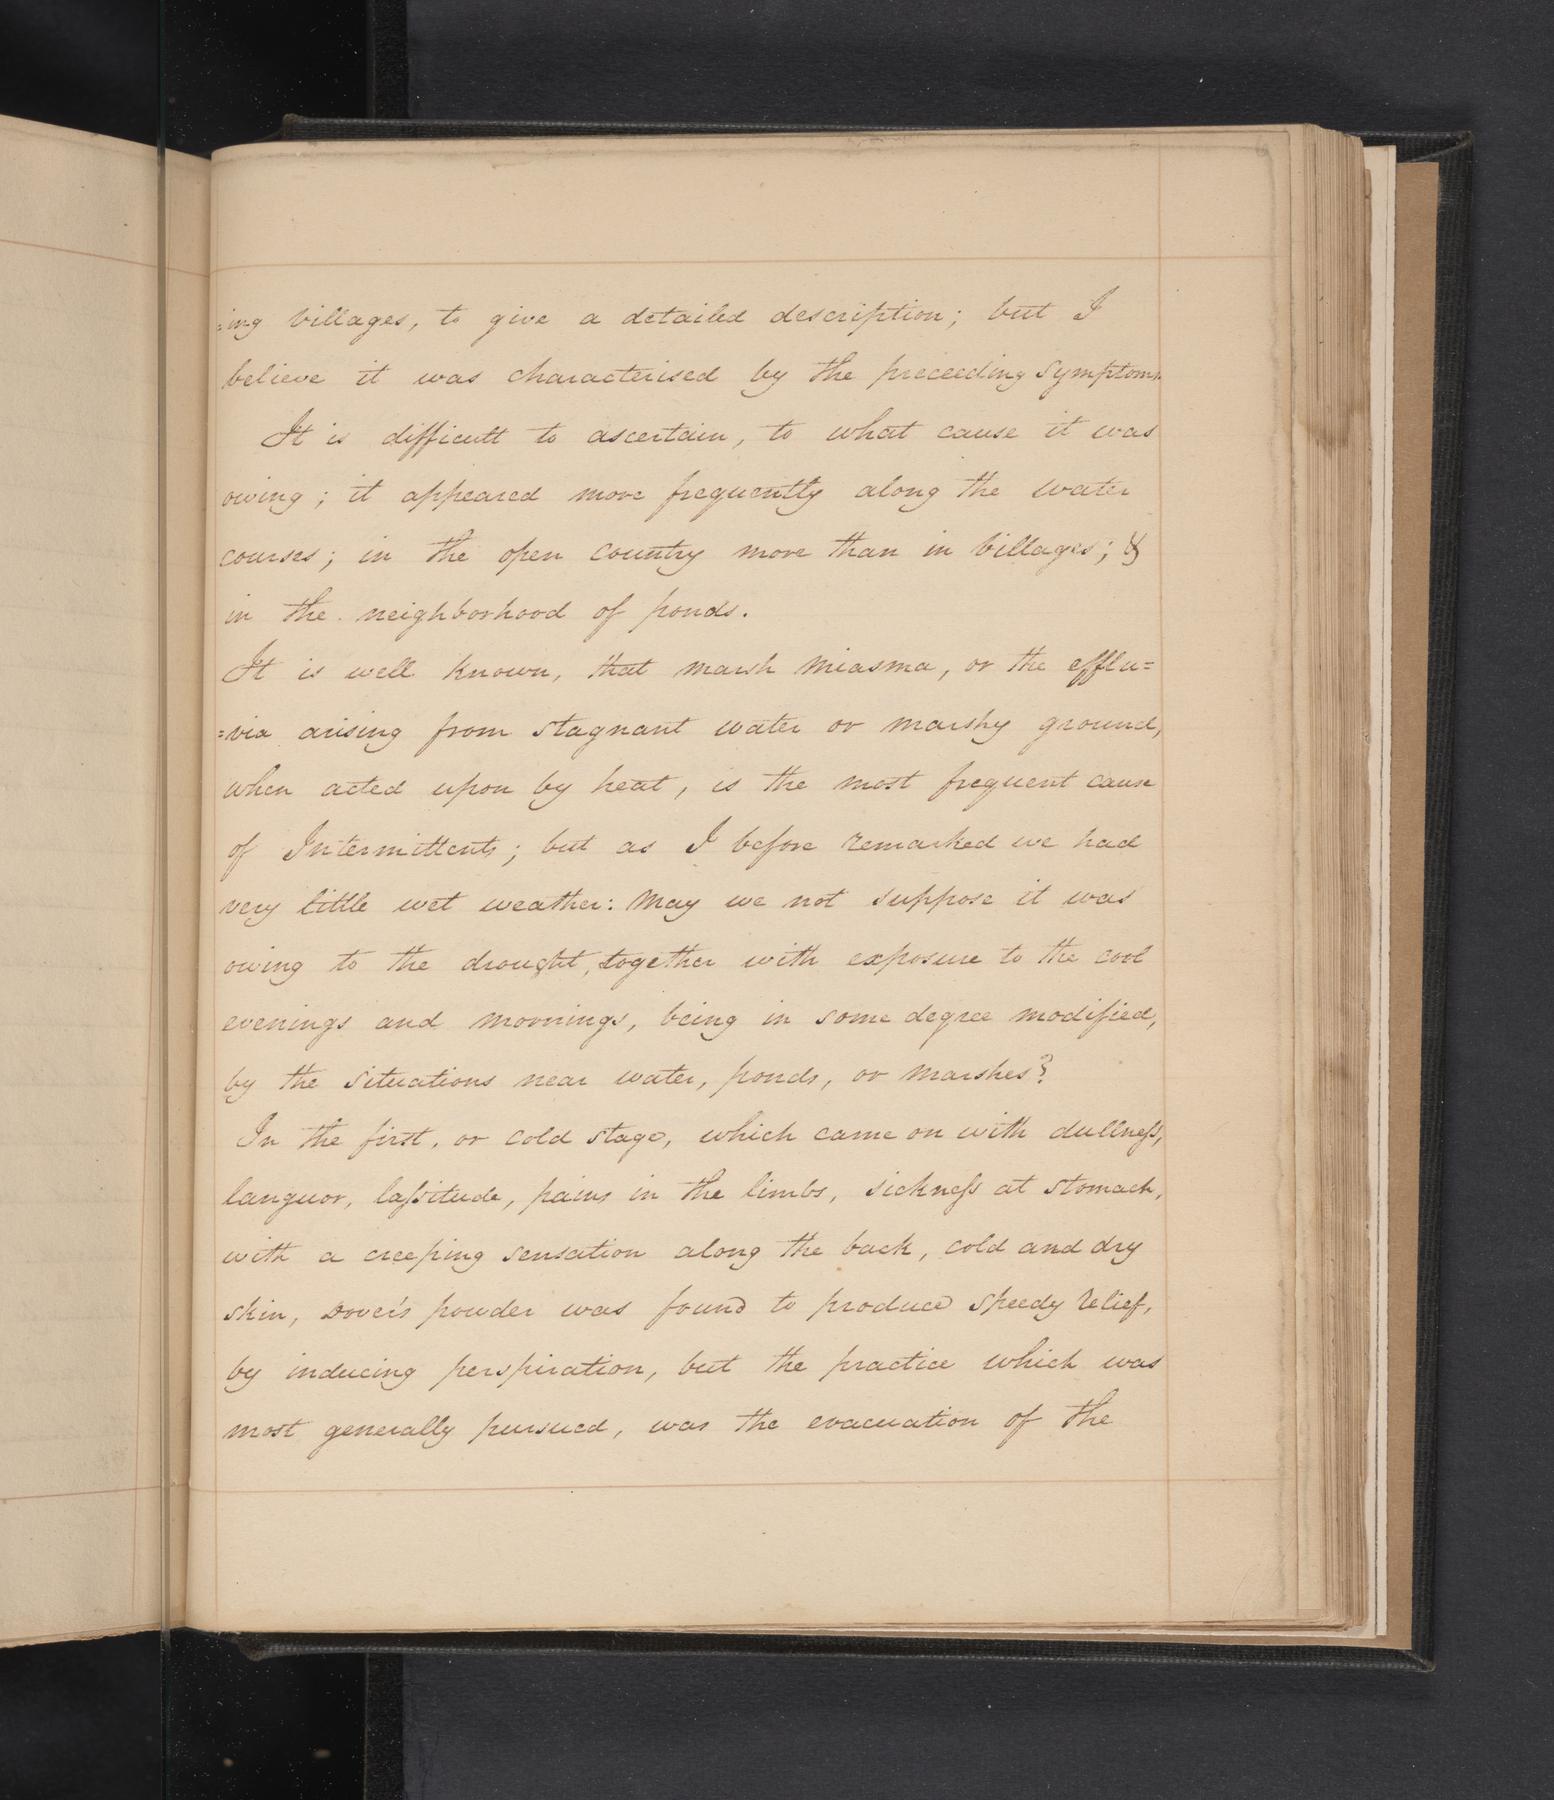 =ing villages, to give a detailed description; but I
believe it was characterised by the preceeding symptoms
It is difficult to ascertain, to what cause it was
owing; it appeared more frequently along the water
courses; in the open country more than in villages; &
in the neighborhood of ponds.
It is well known, that marsh miasma, or the efflu=
=via arising from stagnant water or marshy ground,
when acted upon by heat, is the most frequent cause
of Intermittents; but as I before remarked we had
very little wet weather: May we not suppose it was
owing to the drought, together with exposure to the cool
evenings and mornings, being in some degree modified,
by the situations near water, ponds, or marshes?
In the first, or cold stage, which came on with dullneſs,
languor, laſsitude, pains in the limbs, sickneſs at stomach,
with a creeping sensation along the back, cold and dry
skin, Dover's powder was found to produce speedy relief,
by inducing perspiration, but the practice which was
most generally pursued, was the evacuation of the